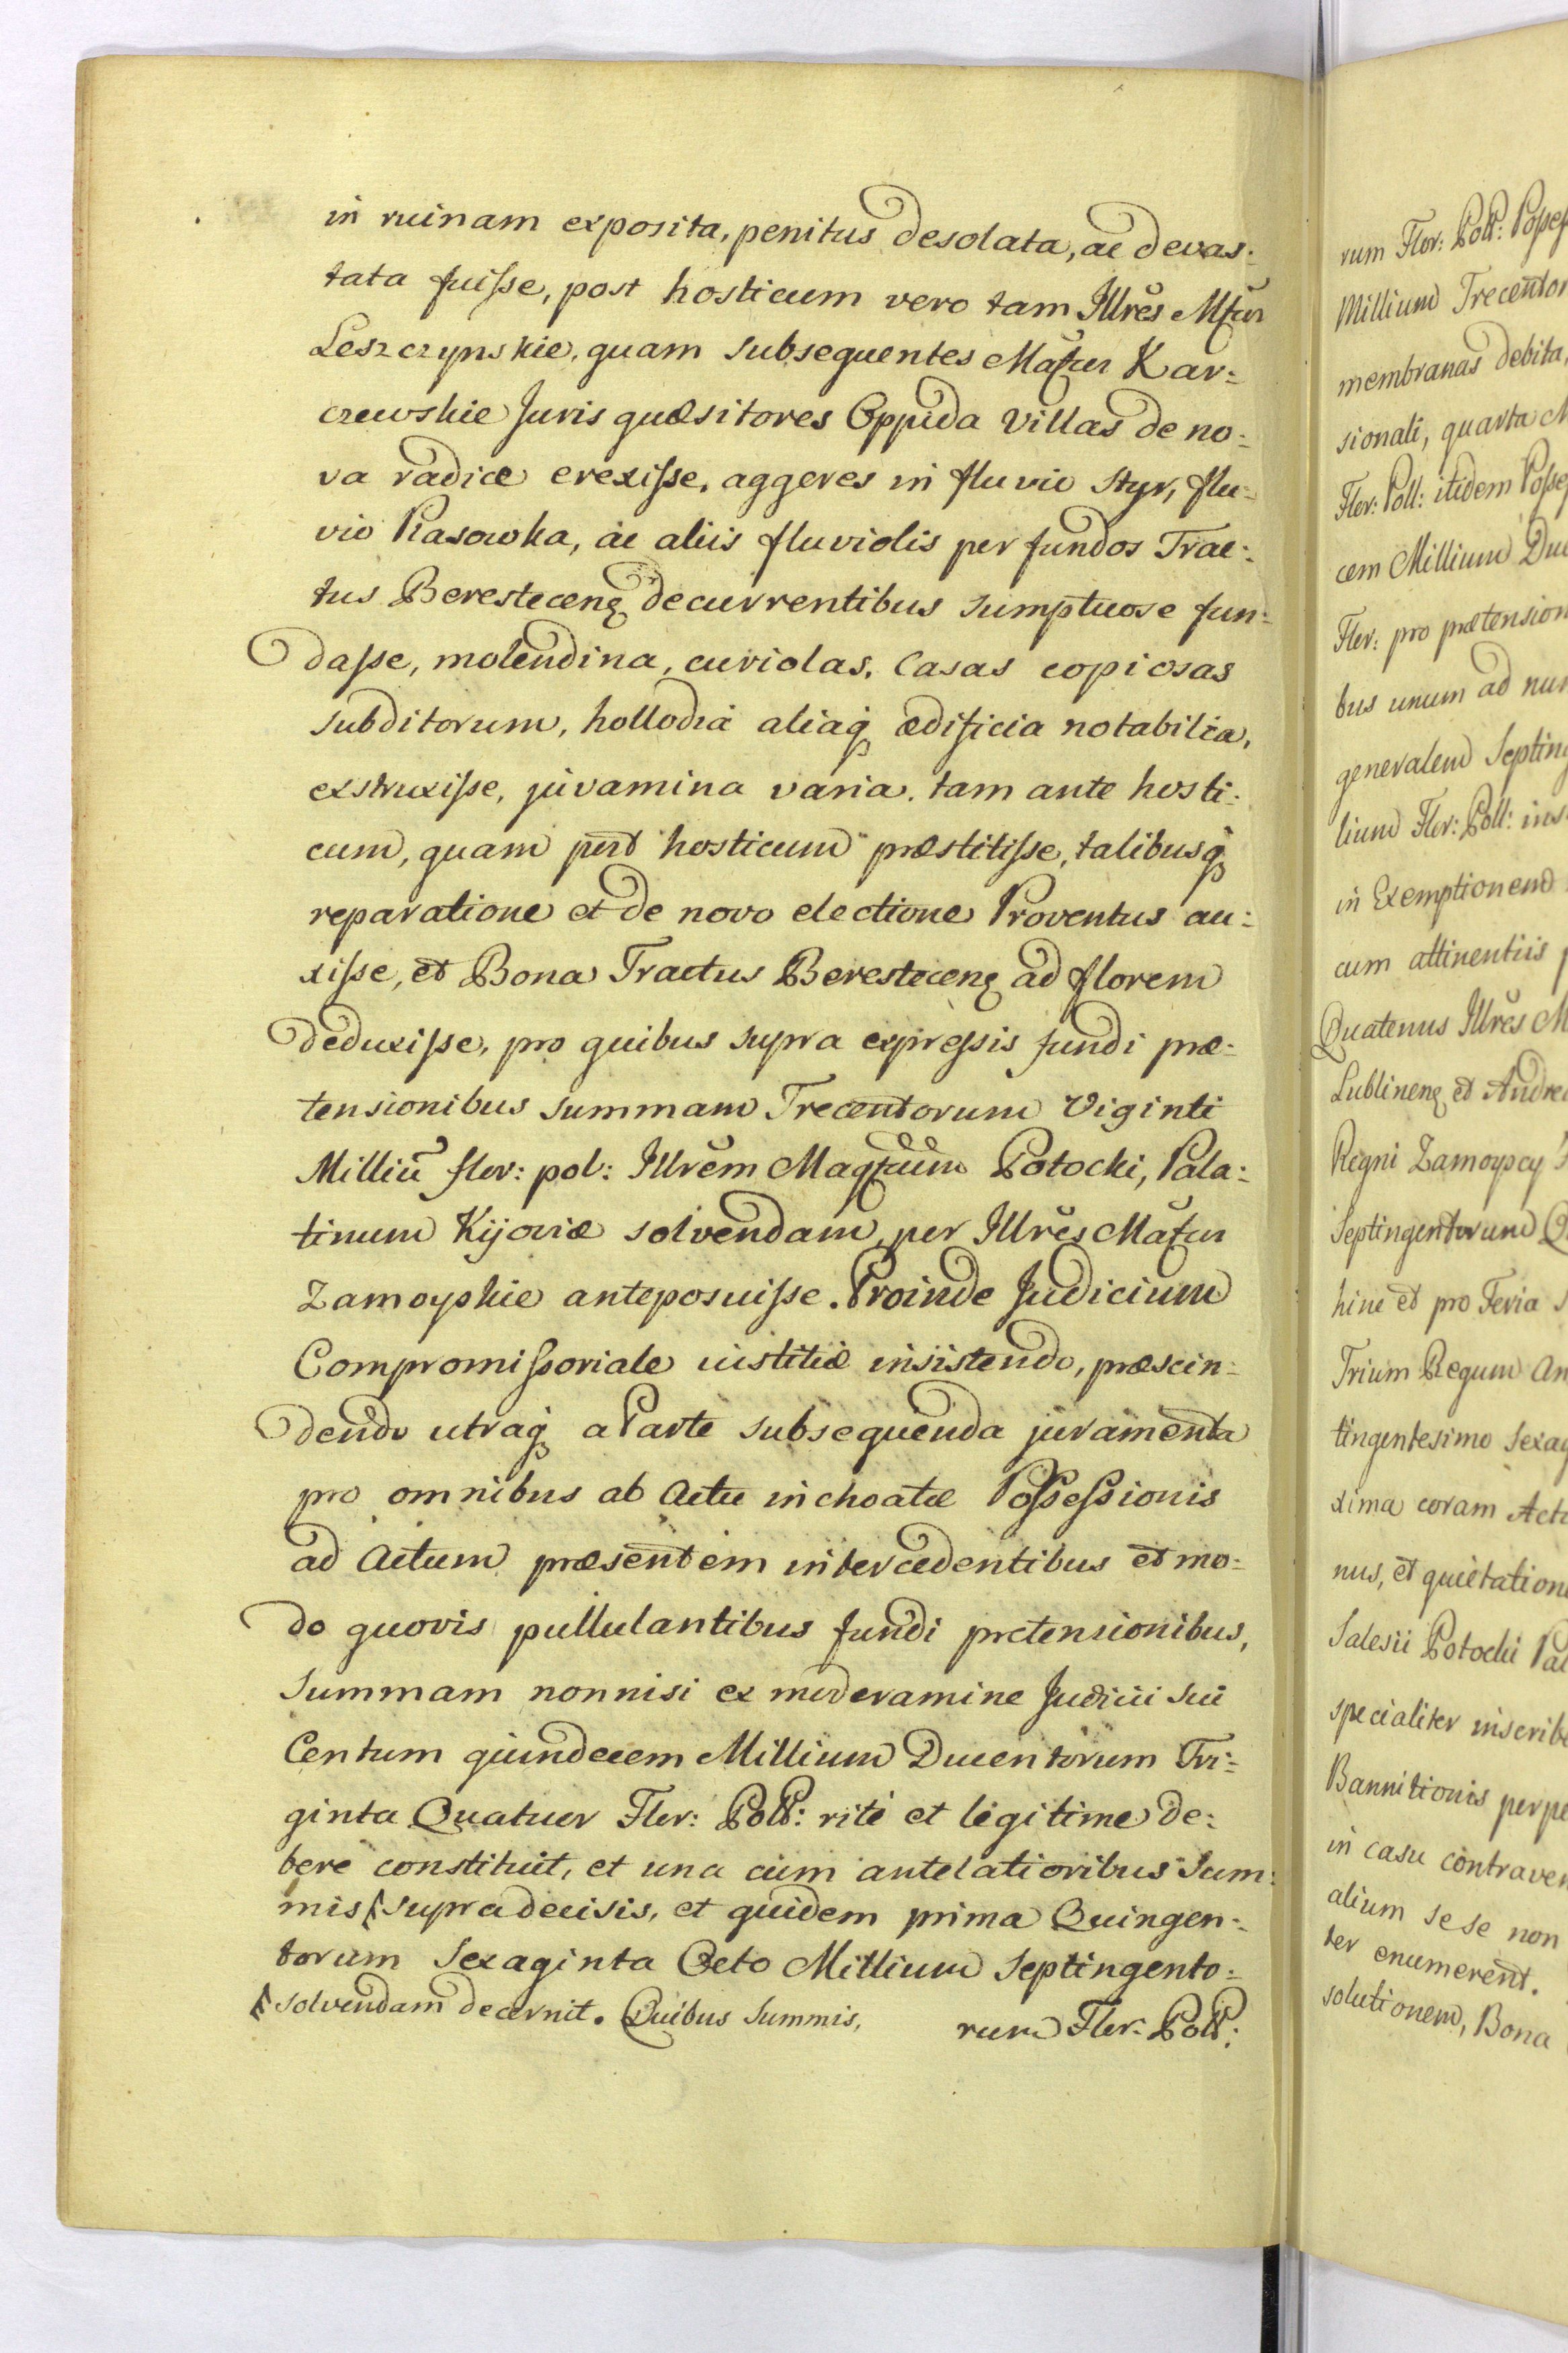 in ruinam exposita, penitus desolata, ac devas:
tata fuisse, post hosticum vero tam Illrĕs Mfcus
Leszczynskie, quam subsequentes Măfcus Kar:
czewskie Juris quæsitores Oppida Villas de no:
va radice erexisse, aggeres in fluvio Styr, flu:
vio Piasowka, ac aliis fluviolis per fundos Trac:
tus Beresteceñ decurrentibus sumptuose fun:
dasse, molendina, curiolas, Casas copiosas
subditorum, hollodia aliaq ædificia notabilia,
exstruxisse, juvamina varia, tam ante hosti:
cum, quam post hosticum præstitisse, talibusq
reparatione et de novo elections Proventus au:
xisse, et Bona Tractus Beresteceñ ad florem
deduxisse, pro quibus supra expressis fundi præ:
tensionibus summam Trecentorum Viginti
Milliũ flor: pol: Illrĕm Magfcum Potocki, Pala:
tinum Kijoviæ solvendam, per Illrĕs Măfcus
Zamoyskie anteposuisse. Proinde Judicium
Compromissoriale iustitiæ insistendo, præscin:
dendo utraq a Parte subsequenda juramenta
pro omnibus ab Actu inchoatæ Possessionis
ad Actum præsentem intercedentibus et mo:
do quovis pullulantibus fundi pretensionibus,
Summam nonnisi ex moderamine Judicii sui
Centum quindecem Millium Ducentorum Tri:
ginta Quatuor Flor: Poll: rité et legitime de:
bere constituit, et una cum antelatioribus Sum:
mis supra decisis, et quidem prima Quingen:
torum Sexaginta Octo Millium Septingento:
solvendam decernit. Quibus Summis,
rum Flor: Poll:
rum Flor: Poll: Posses
Millium Trecentor
membranas debita,
sionali, quarta M
Flor: Poll: itidem Posse
cem Millium Du
Flor: pro prætension
bus unum ad nu
generalem Septin
lium Flor: Poll: ins
in Exemptionem
cum attinentiis p
Quatenus Illrĕs M
Lublineñ et Andre
Regni Zamoyscy
Septingentorum Q
hinc et pro Feria
Trium Regum An
tingentesimo Sexag
xima coram Act
nus, et quietation
Salesii Potocki Pal
specialiter inscrib
Bannitionis perpe
in casu contraven
alium sese non
ter enumerent.
solutionem, Bona